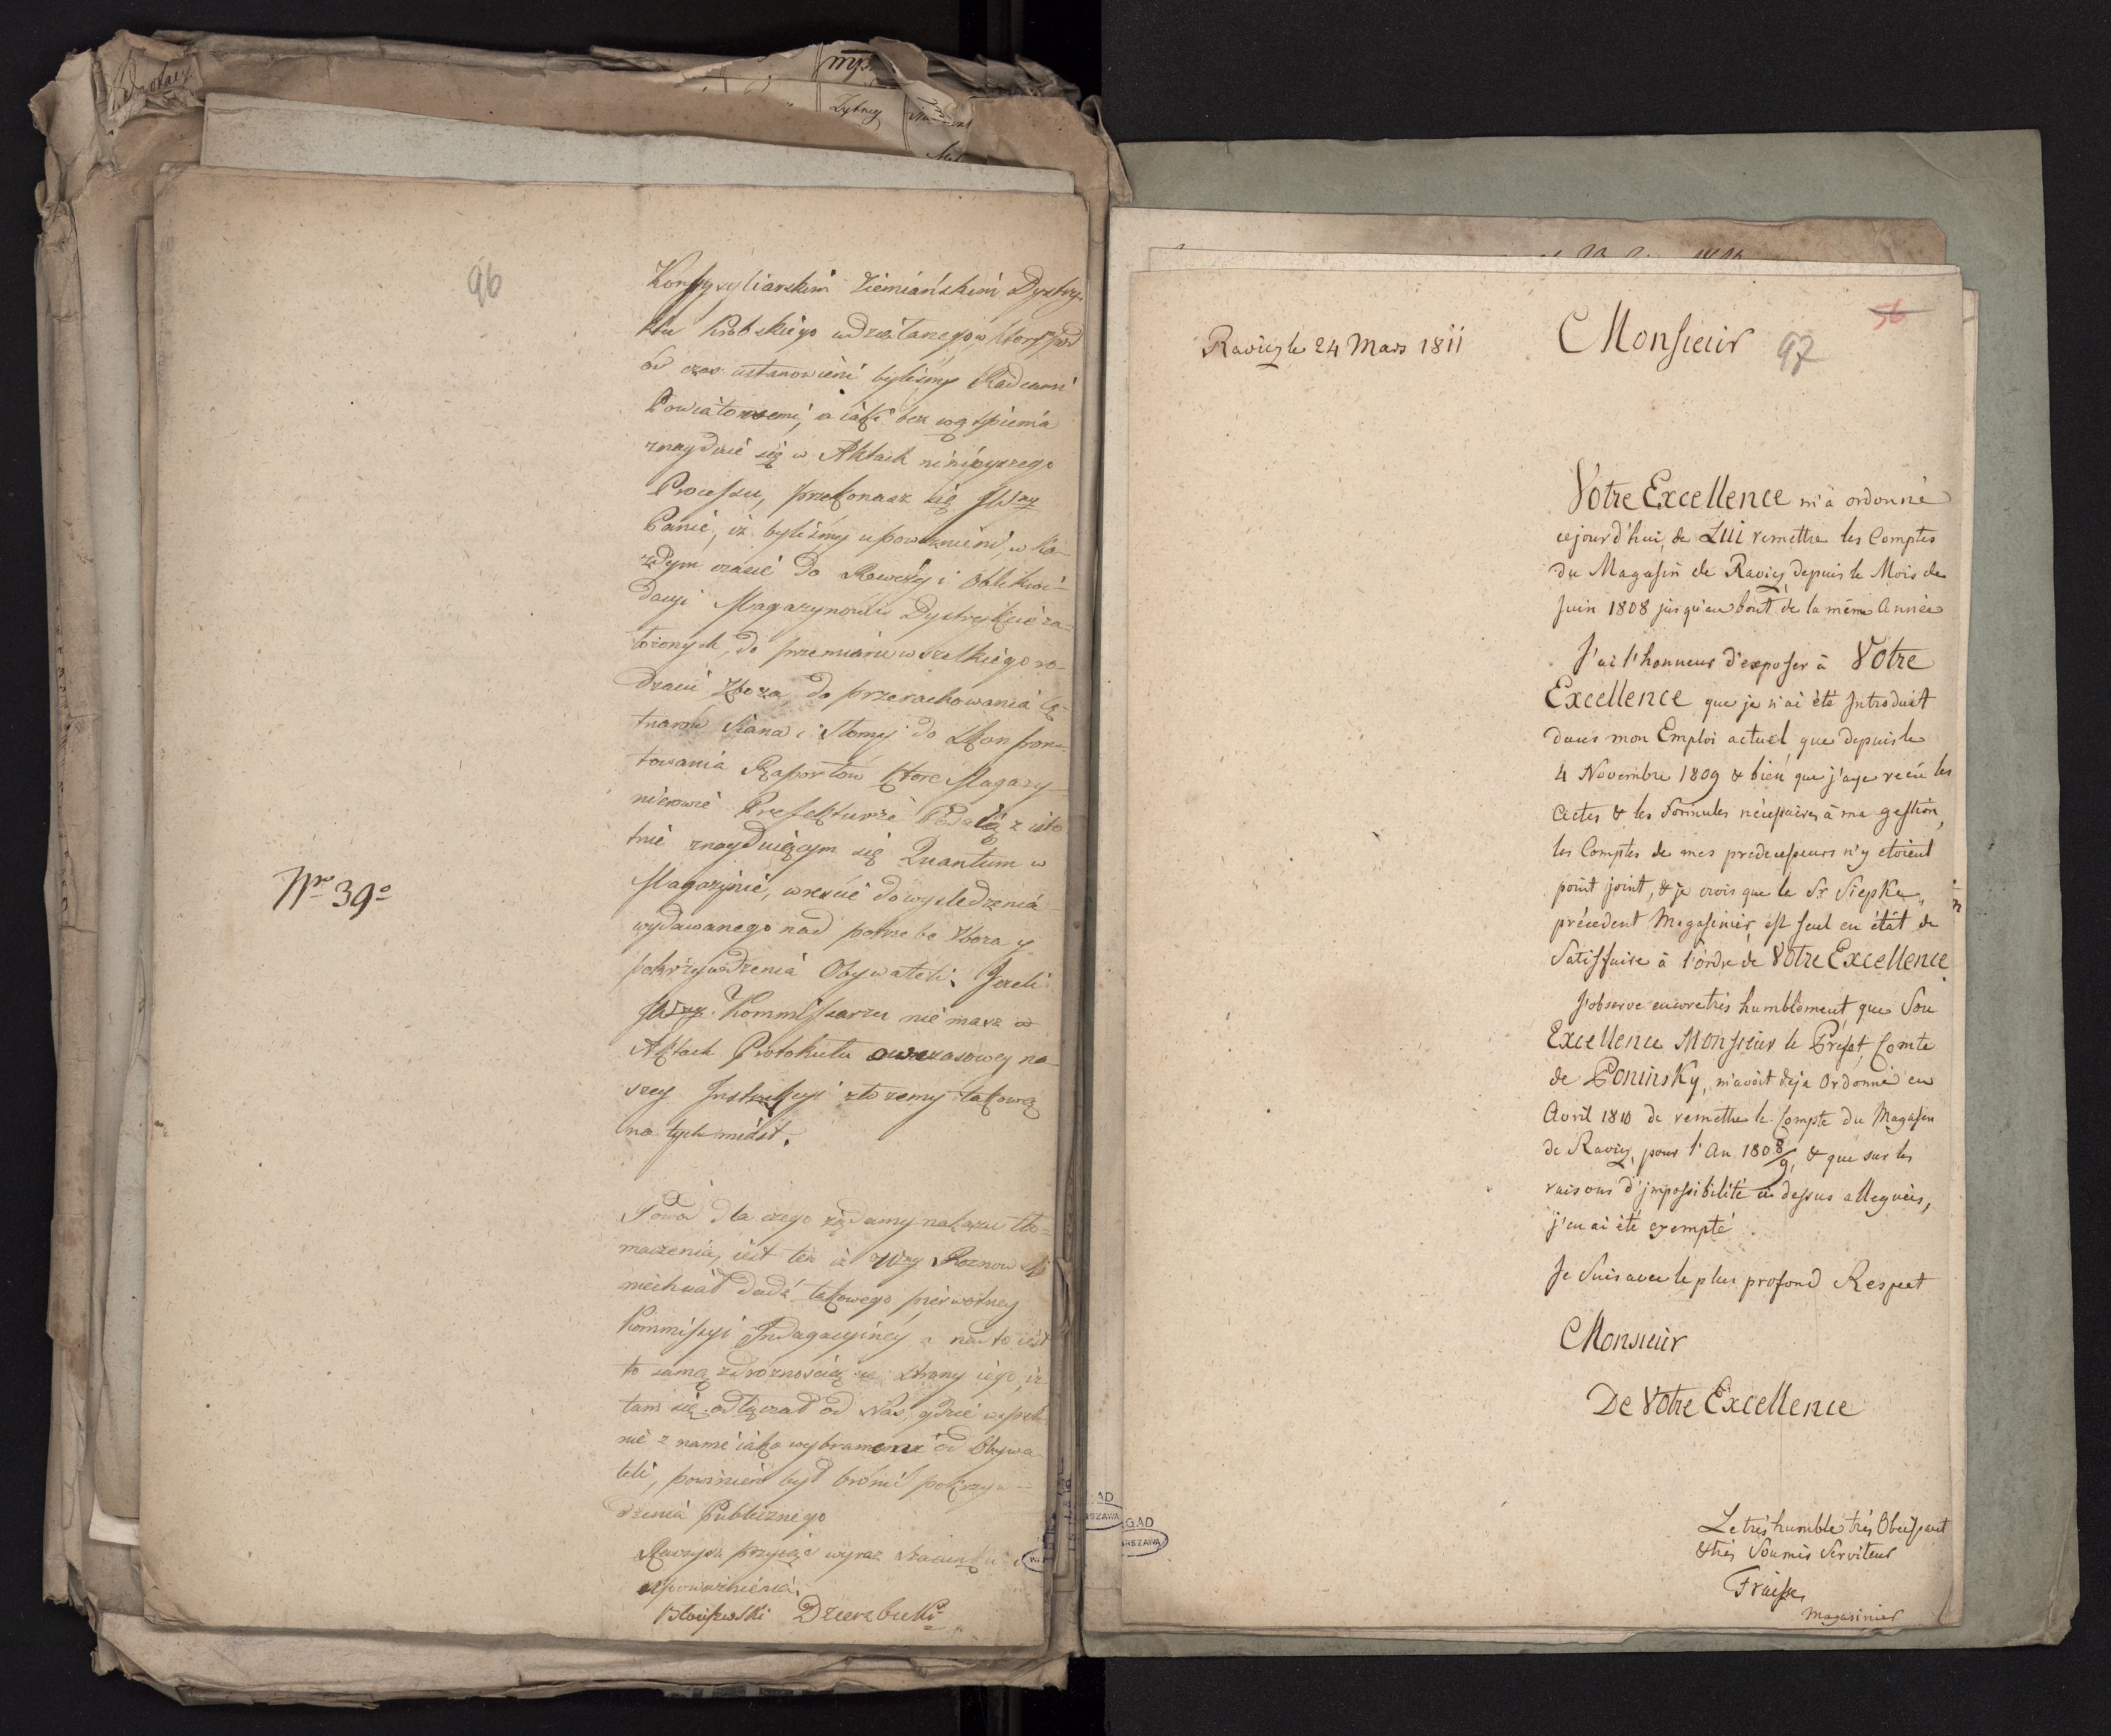 96
Konsyliarskim Ziemiańskim Dystry-
ktu Krobskiego udziałanego, którzy pod
ów czas ustanowieni byliśmy Radcami
Powiatowemi, a iakie bez wątpienia
znayduie się w Aktach ninieyszego
Processu, przekonasz się JWny
Panie, iż byliśmy upoważnieni, w ka-
żdym czasie do Rewizyi i Oblikwi-
dacyi Magazynow w Dystrykcie za-
łożonych, do przemiaru wszelkiego ro-
dzaiu Zboża, do przerachowania Cę-
tnarow Siana i Słomy do Skonfron-
towania Raportow ktore Magazy-
nierowie Prefekturze Podalą z isto
tnie znayduiącym się Quantum w
Magazynie, wreście do wysledzenia
wydawanego nad potrzebę Zboża y
pokrzywdzenia Obywateli. Jezeli
JWny Kommissarzu nie masz w
Aktach Protokułu owczasowey na-
szey Instrukcyi złożemy takową
na tychmiast.
Powod dla czego żądamy nakazu tło-
maczenia, iest ten iż Wny Roznowski
niechciał dadź takowego pierwotney
Kommissyi Indagacyiney a nadto iest
to samą zdrożnością ze strony iego, iż
tam się odłączał od Nas, gdzie wspol-
nie z nami iako wybranemi od Obywa-
teli, powinien był bronić pokrzyw-
dzenia Publicznego
Raczysz przyiąć wyraz szacunku i
upoważnienia.
Dzierzbicki
Nro 39o
56
97
Ravicz le 24 Mars 1811
Monsieur
Votre Excellence m'à ordonné
cejourd'hui, de LUI remettre les Comptes
du Magasin de Ravicz depuis le Mois de
Juin 1808 jusqu'au bout de la même Année
J'ai l'honneur d'exposer à Votre
Excellence que je n'ai été Introduit
dans mon Emploi actuel que depuis le
4 Novembre 1809 & bien que j'aye reçû les
Actes & les Formules nécessaires à ma gestion,
les Comptes de mes predecesseurs n'y etoient
point joint, & je crois que le Sr. Siepke,
précedent Magasinier, est seul en état de
Satisfaire à l'ordre de Votre Excellence
J'observe encore très humblement que Son
Excellence Monsieur le Préfet, Comte
de Poninsky, m'avoit deja Ordonné en
Avril 1810 de remettre le Compte du Magasin
de Ravicz, pour l'An 1808/9, & que sur les
raisons d'jmpossibilité ci dessus alleguées,
j'en ai été exempté
Je Suis avec le plus profond Respect
Monsieur
De Votre Excellence
Le très humble très Obeissant
& très Soumis Serviteur
Fraisse
Magasinier
AGAD
WARSZAWA